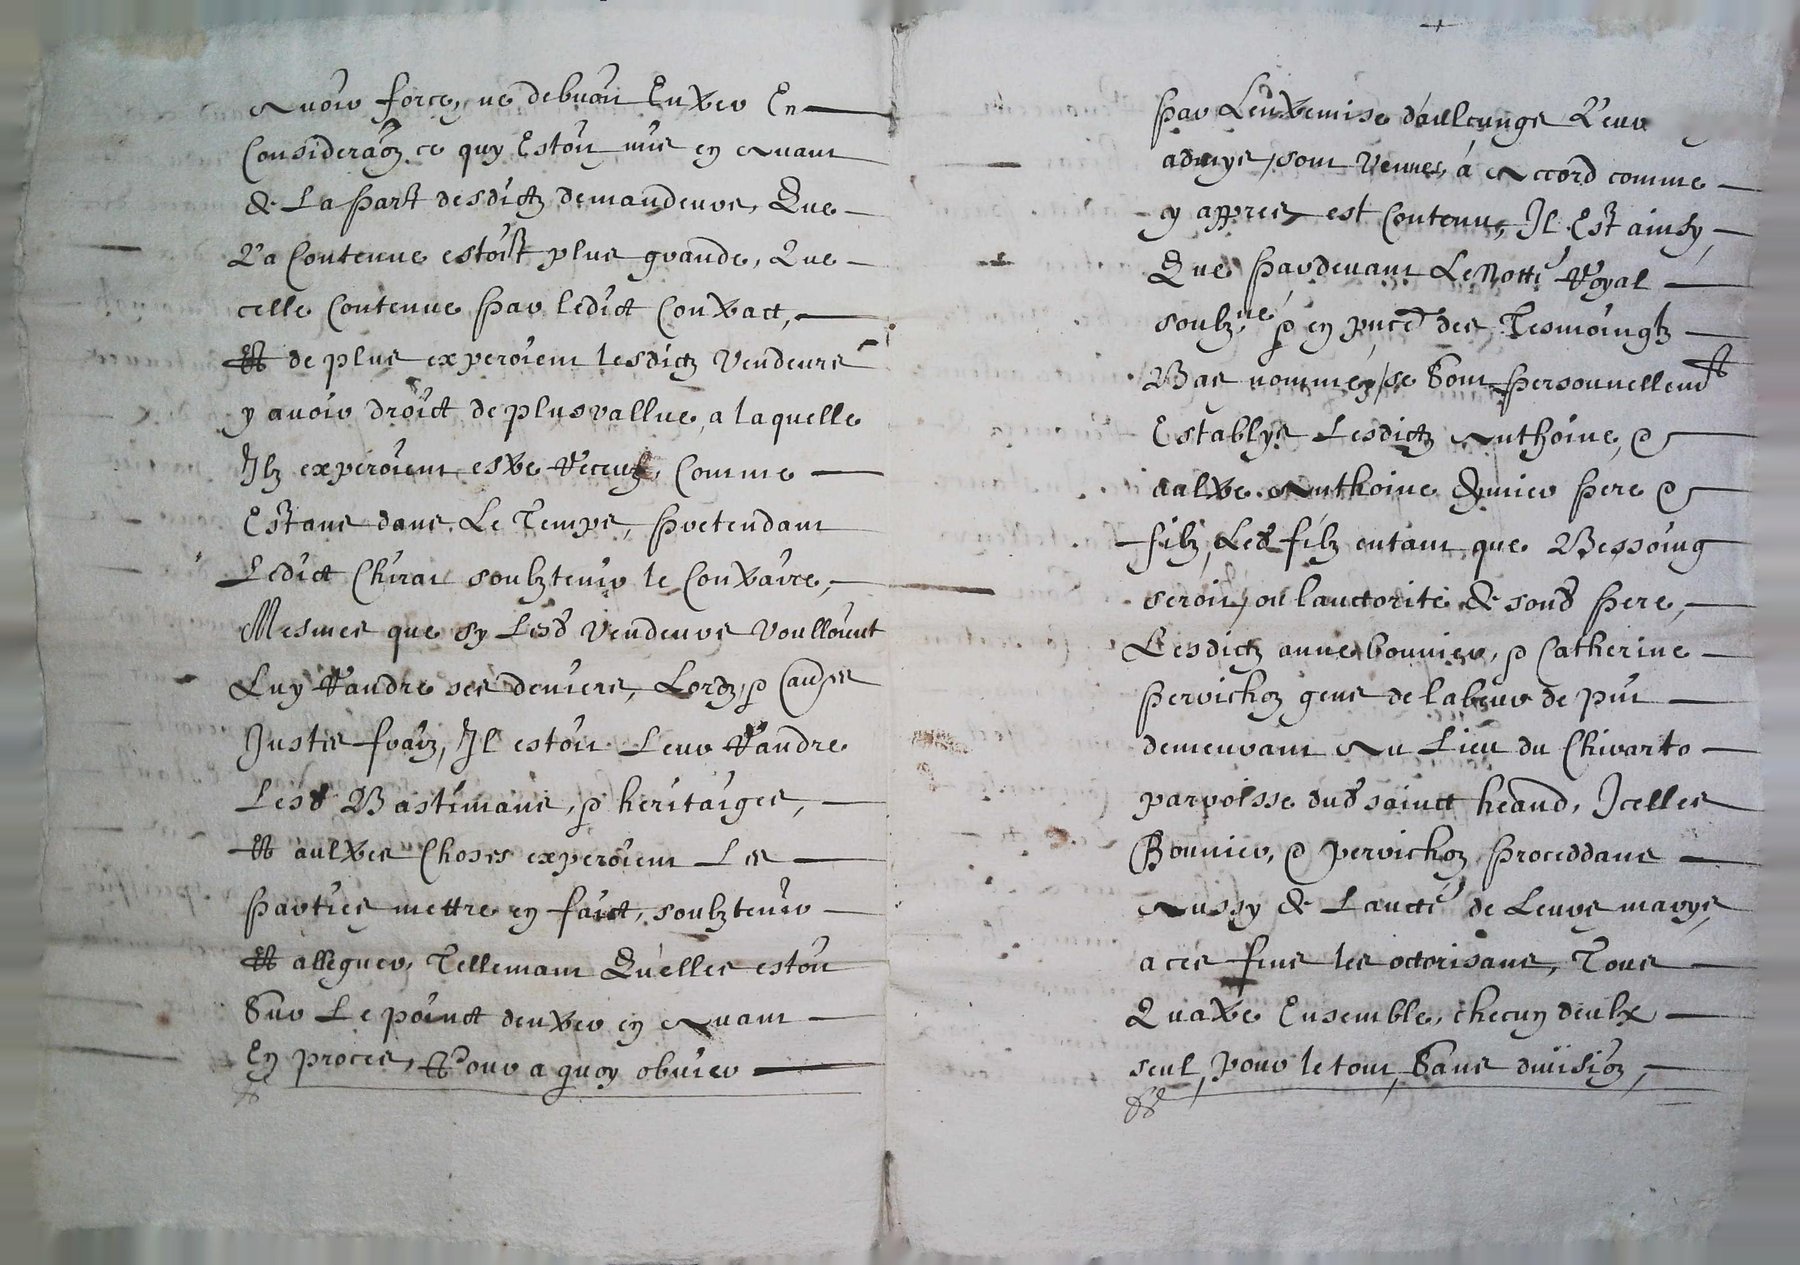 Avoir force, ne debvoit Entrer En
Consideraõn ce quy Estoit mis en Avant
de La part desdictz demandeurs, Que
La Contenue estoist plus grande, Que
celle Contenue par ledict Contract,
Et de plus experoient lesdictz Vendeurs
y avoir droict de plusvallue, a laquelle
Ilz experoient estre Receuz, Comme
Estans dans Le Temps, pretendant
Ledict Chirat soulztenir le Contraire,
Mesmes que sy Lesd Vendeurs Voulloint
Luy Randre ses deniers, Lordz, & Causes
Justes fraiz, Il estoit Leur Randre
Lesd Bastimans, & heritaiges,
Et aultres Choses experoient Les
parties mettre en faict, soulztenir
Et alleguer, Tellemant Quelles estoit
Sur Le poinct dentrer en Avant
En proces, Pour a quoy obvier
par Lentremise daulcungs Leur
admys, sont Venues, á Accord comme
cy appres, est Contenu, Il Est ainsy,
Que pardevant Le Nottē Royal
soulzné & en pnce des Tesmoingtz
Bas nommés, se Sont personnellemt
Establys Lesdictz Anthoine, &
aultre Anthoine pere &
filz, Led filz entant que Bessoing
seroit, ou lauctorité de sond pere,
Lesdictz anne bonnier, & Catherine
pervichon gens de labeur de put
demeurant Au Lieu du Chirarto
parroisse dud sainct heand, Icelles
Bonnier, & pervichon proceddans
Aussy de Laucté de Leurs marys,
a ces fins les octorisans, Tous
Quatre Ensemble, checun deulx
seul, pour le tout, Sans divisiõn,